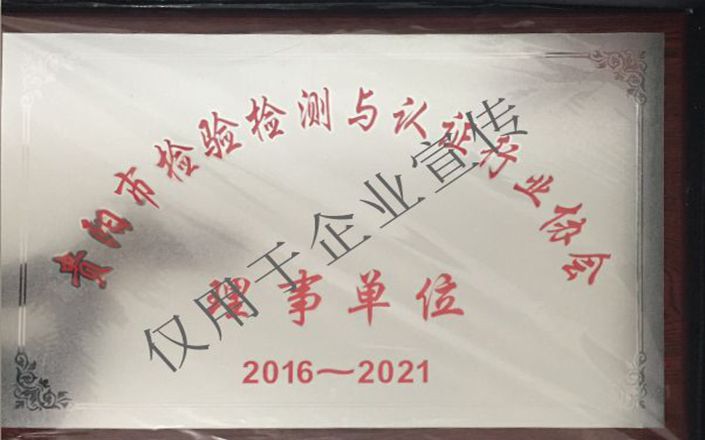 贵阳市检验检测与认证行业协会
理事单位
2016～2021
仅用于企业宣传